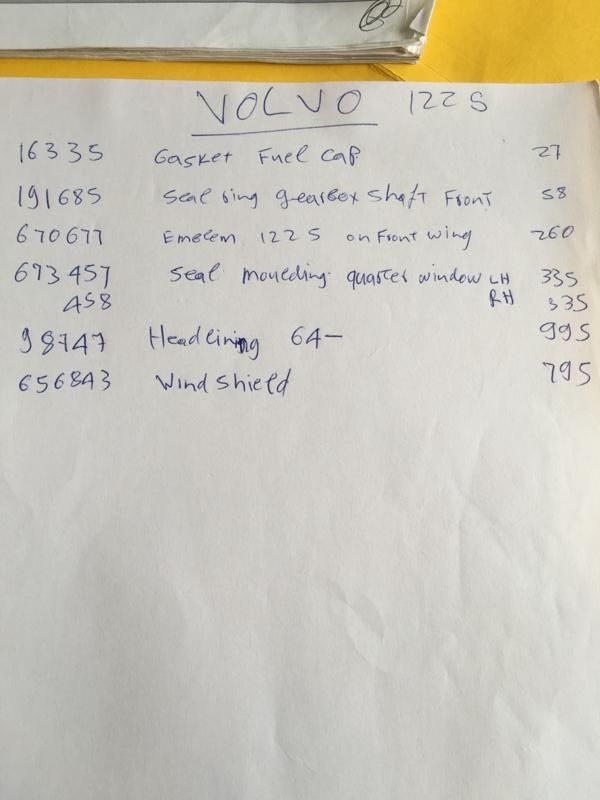 VOLVO 122 S
16335 Gasket Fuel Cap 27
191685 Seal ring gearbox Shaft Front 58
670677 Emblem 122 S on Front wing 260
673457 Seal moulding quarter window LH 335
458 RH 335
98747 Headlining 64-
995
656843 Wind Shield 795